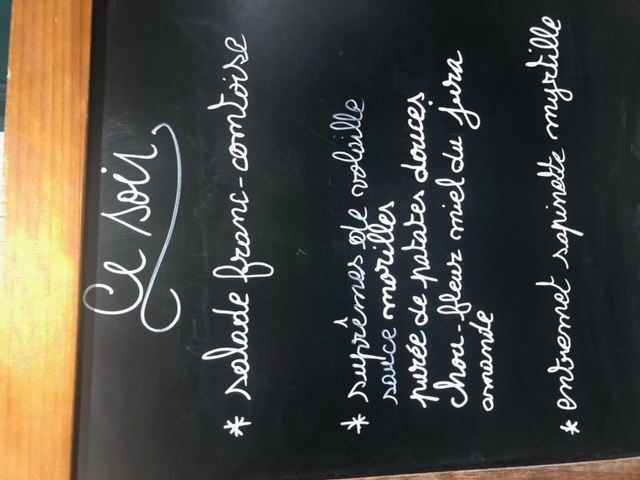 Ce soir
* salade franc-comtoise
* suprêmes de volaille
sauce morilles
purée de patates douces
chou-fleur miel du jura
amande
* entremet sapinette myrtille